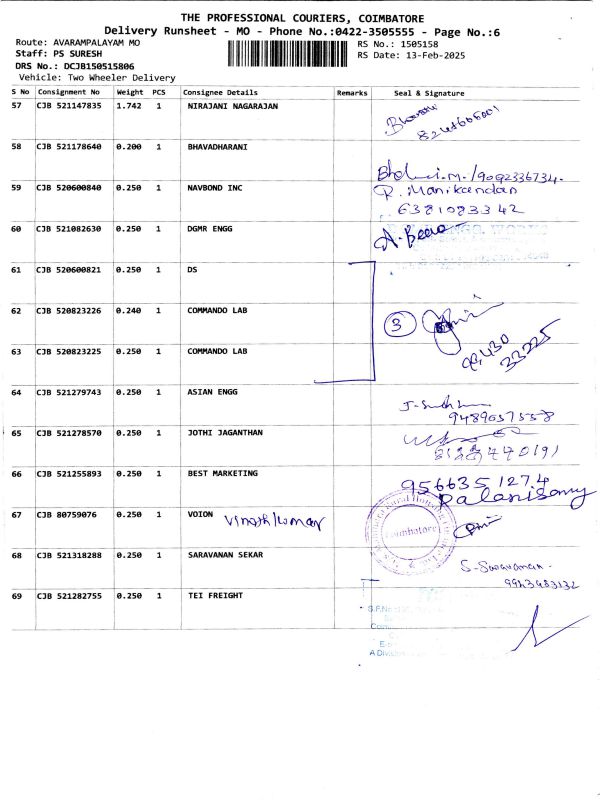 THE PROFESSIONAL COURIERS, COIMBATORE
Delivery Runsheet - MO - Phone No.:0422-3505555 - Page No.:6
Route: AVARAMPALAYAM MO
Staff: PS SURESH
DRS No.: DCJB150515806
Vehicle: Two Wheeler Delivery
RS No.: 1505158
RS Date: 13-Feb-2025
S No Consignment No Weight PCS Consignee Details Remarks Seal & Signature
57 CJB 521147835 1.742 1 NIRAJANI NAGARAJAN
58 CJB 521178640 0.200 1 BHAVADHARANI
9092336734.
59 CJB 520600840 0.250 1 NAVBOND INC R. Manikandan
6381083342
60 CJB 521082630 0.250 1 DGMR ENGG
61 CJB 520600821 0.250 1 DS
62 CJB 520823226 0.240 1 COMMANDO LAB 3
63 CJB 520823225 0.250 1 COMMANDO LAB
64 CJB 521279743 0.250 1 ASIAN ENGG
9489657558
65 CJB 521278570 0.250 1 JOTHI JAGANTHAN
66 CJB 521255893 0.250 1 BEST MARKETING 956635 1274
Palanisamy
67 CJB 80759076 0.250 1 VOION Vinothkumar
Coimbatore
68 CJB 521318288 0.250 1 SARAVANAN SEKAR S. Saravanan
9943483132
69 CJB 521282755 0.250 1 TEI FREIGHT